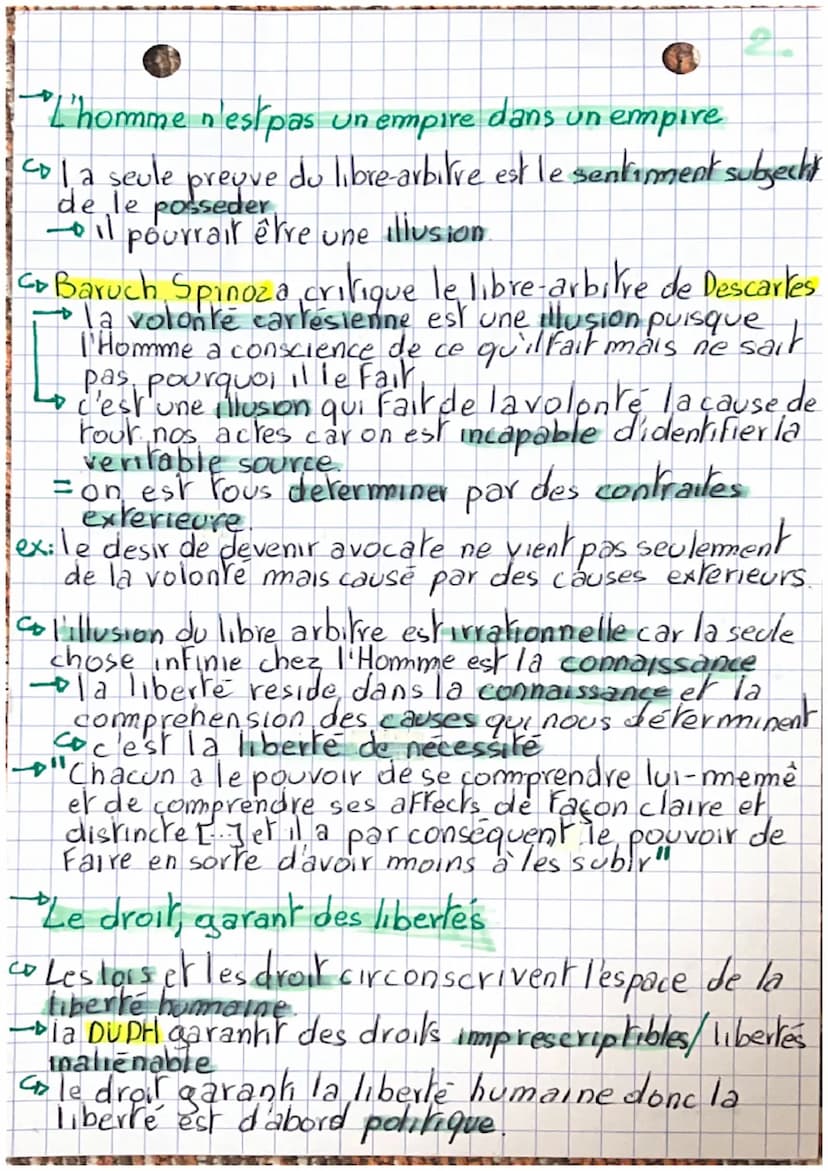 2.
→ L'homme n'est pas un empire dans un empire
↪ la seule preuve du libre-arbitre est le sentiment subjectif
de le posseder
→ il pourrait être une illusion.
↪ Baruch Spinoza critique le libre-arbitre de Descartes
→ la volonté cartésienne est une illusion puisque
l'Hommme a conscience de ce qu'il fait mais ne sait
pas pourquoi il le fait
↳ c'est une illusion qui fait de la volonté la cause de
tout nos actes car on est incapable d'identifier la
veritable source.
= on est tous determiner par des contraites
exterieure.
ex: le desir de devenir avocate ne vient pas seulement
de la volonté mais causé par des causes exterieurs.
↪ l'illusion du libre arbitre est irrationnelle car la seule
chose infinie chez l'Homme est la connaissance
→ la liberté reside dans la connaissance et la
comprehension des causes qui nous déterminent
↪ c'est la liberté de nécessité
→ "Chacun a le pouvoir de se comprendre lui-memê
et de comprendre ses affects de façon claire et
distincte [...] et il a par conséquent le pouvoir de
faire en sorte d'avoir moins à les subir"
→ Le droit, garant des libertés
↪ Les lois et les droit circonscrivent l'espace de la
liberté humaine.
→ la DUDH garantit des droits imprescriptibles/libertés
inaliénable
↪ le droit garanti la liberté humaine donc la
liberté est d'abord politique.